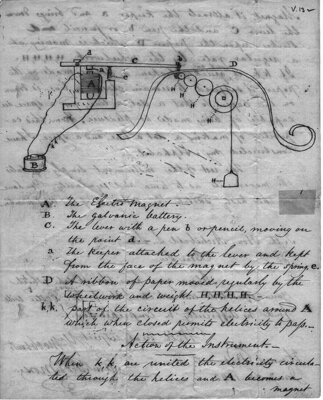 V. 13
d
C
b
D
A
B
H
H
H
H
A The Electro Magnet.
B. The galvanic battery.
C. The lever with a pen b or pencil, moving on
the point d.
a The keeper attached to the lever and kept
from the face of the magnet by the spring c.
D A ribbon of paper moved regularly by the
wheelwork and weight H. H. H. H.
k, k, part of the circuit of the helices around A
which when closed permits electricity to pass.
Action of the Instrument
When k k, are united the electricity circula-
ted through the helices and A becomes a
magnet